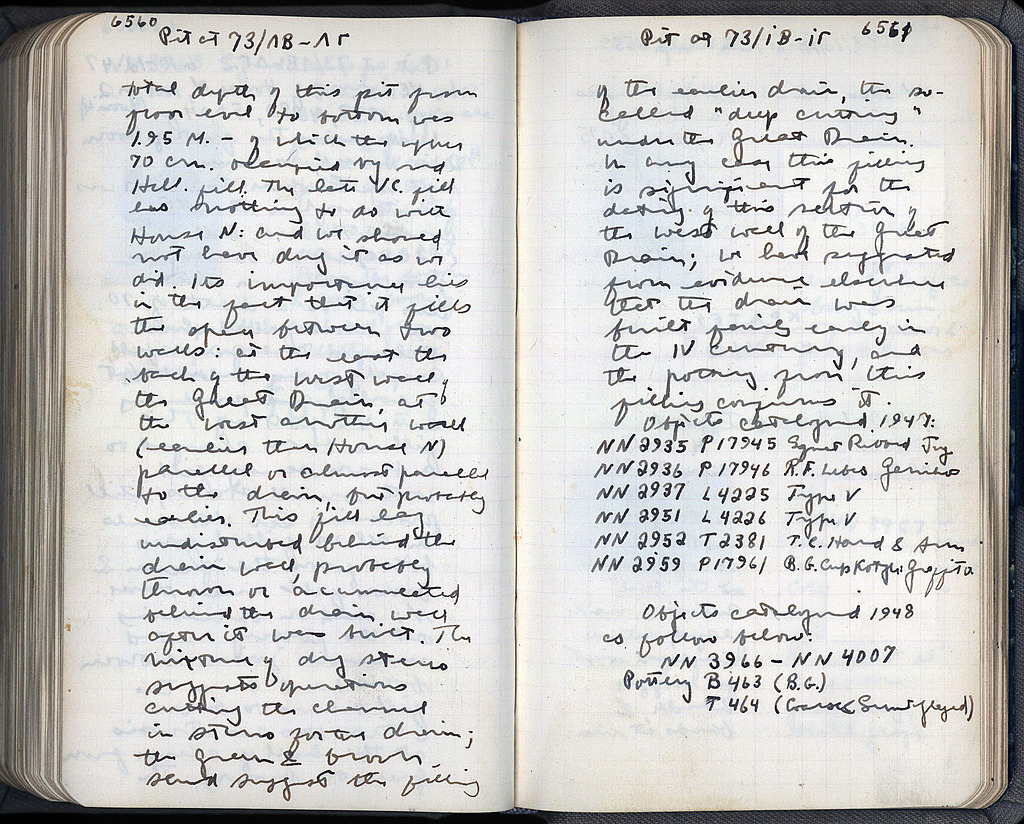 6560
Pit at 73/ΛB-ΛΓ
total depth of this pit from
floor level to bottom was
1.95 M. – of which the upper
70 cm. occupied by red
Hell. fill. The late V C. fill
has nothing to do with
House N: and we should
not have dug it as we
did. Its importance lies
in the fact that it fills
the space between two
walls: at the east the
back of the west wall of
the Great Drain, at
the west another wall
(earlier than House N)
parallel or almost parallel
to the drain but probably
earlier. This fill lay
undisturbed behind the
drain wall, probably
thrown or accumulated
behind the drain wall
after it was built. The
mixture of dug stereo
suggests operations
cutting the channel
in stereo for the drain;
the green & brown
sand suggest the filling
6561
Pit at 73/ΛB-ΛΓ
of the earlier drain, the so-
called "deep cutting"
under the Great Drain.
In any case this filling
is significant for the
dating of this section of
the west wall of the Great
Drain; we have suggested
from evidence elsewhere
that the drain was
built fairly early in
the IV century, and
the pottery from this
filling confirms it.
Objects catalogued 1947:
NN 2935 P 17945 Squat Ribbed Jug
NN 2936 P 17946 R.F. Lebes Gamikos
NN 2937 L 4225 Type V
NN 2951 L 4226 Type V
NN 2952 T 2381 T.C. Hand & Arm
NN 2959 P 17961 B.G. Cup Kotyle: Graffito
Objects catalogued 1948
as follow below:
NN 3966 – NN 4007
Pottery B 463 (B.G.)
T 464 (Coarse & Semi-glazed)